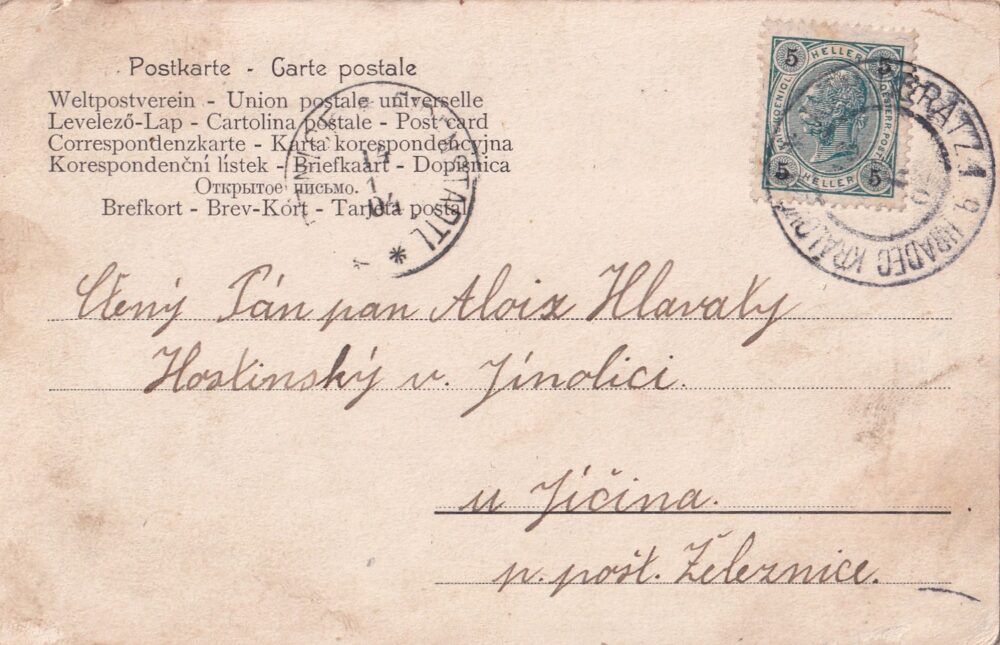 Postkarte - Carte postale
Weltpostverein - Union postale universelle
Levelező-Lap - Cartolina postale - Post card
Correspondenzkarte - Karta korespondencyjna
Korespondenční lístek - Briefkaart - Dopisnica
Открытое письмо.
Brefkort - Brev-Kort - Tarjeta postal
5 HELLER 5
KAIS. KOENIGL. OESTERR. POST
5 HELLER 5
GRÄTZ 1
HRADEC KRÁLOVÉ
17
1
04
Ctěný Pán pan Alois Hlavatý
Hostinský v. Jínolici.
u Jíčína.
p. pošt. Železnice.